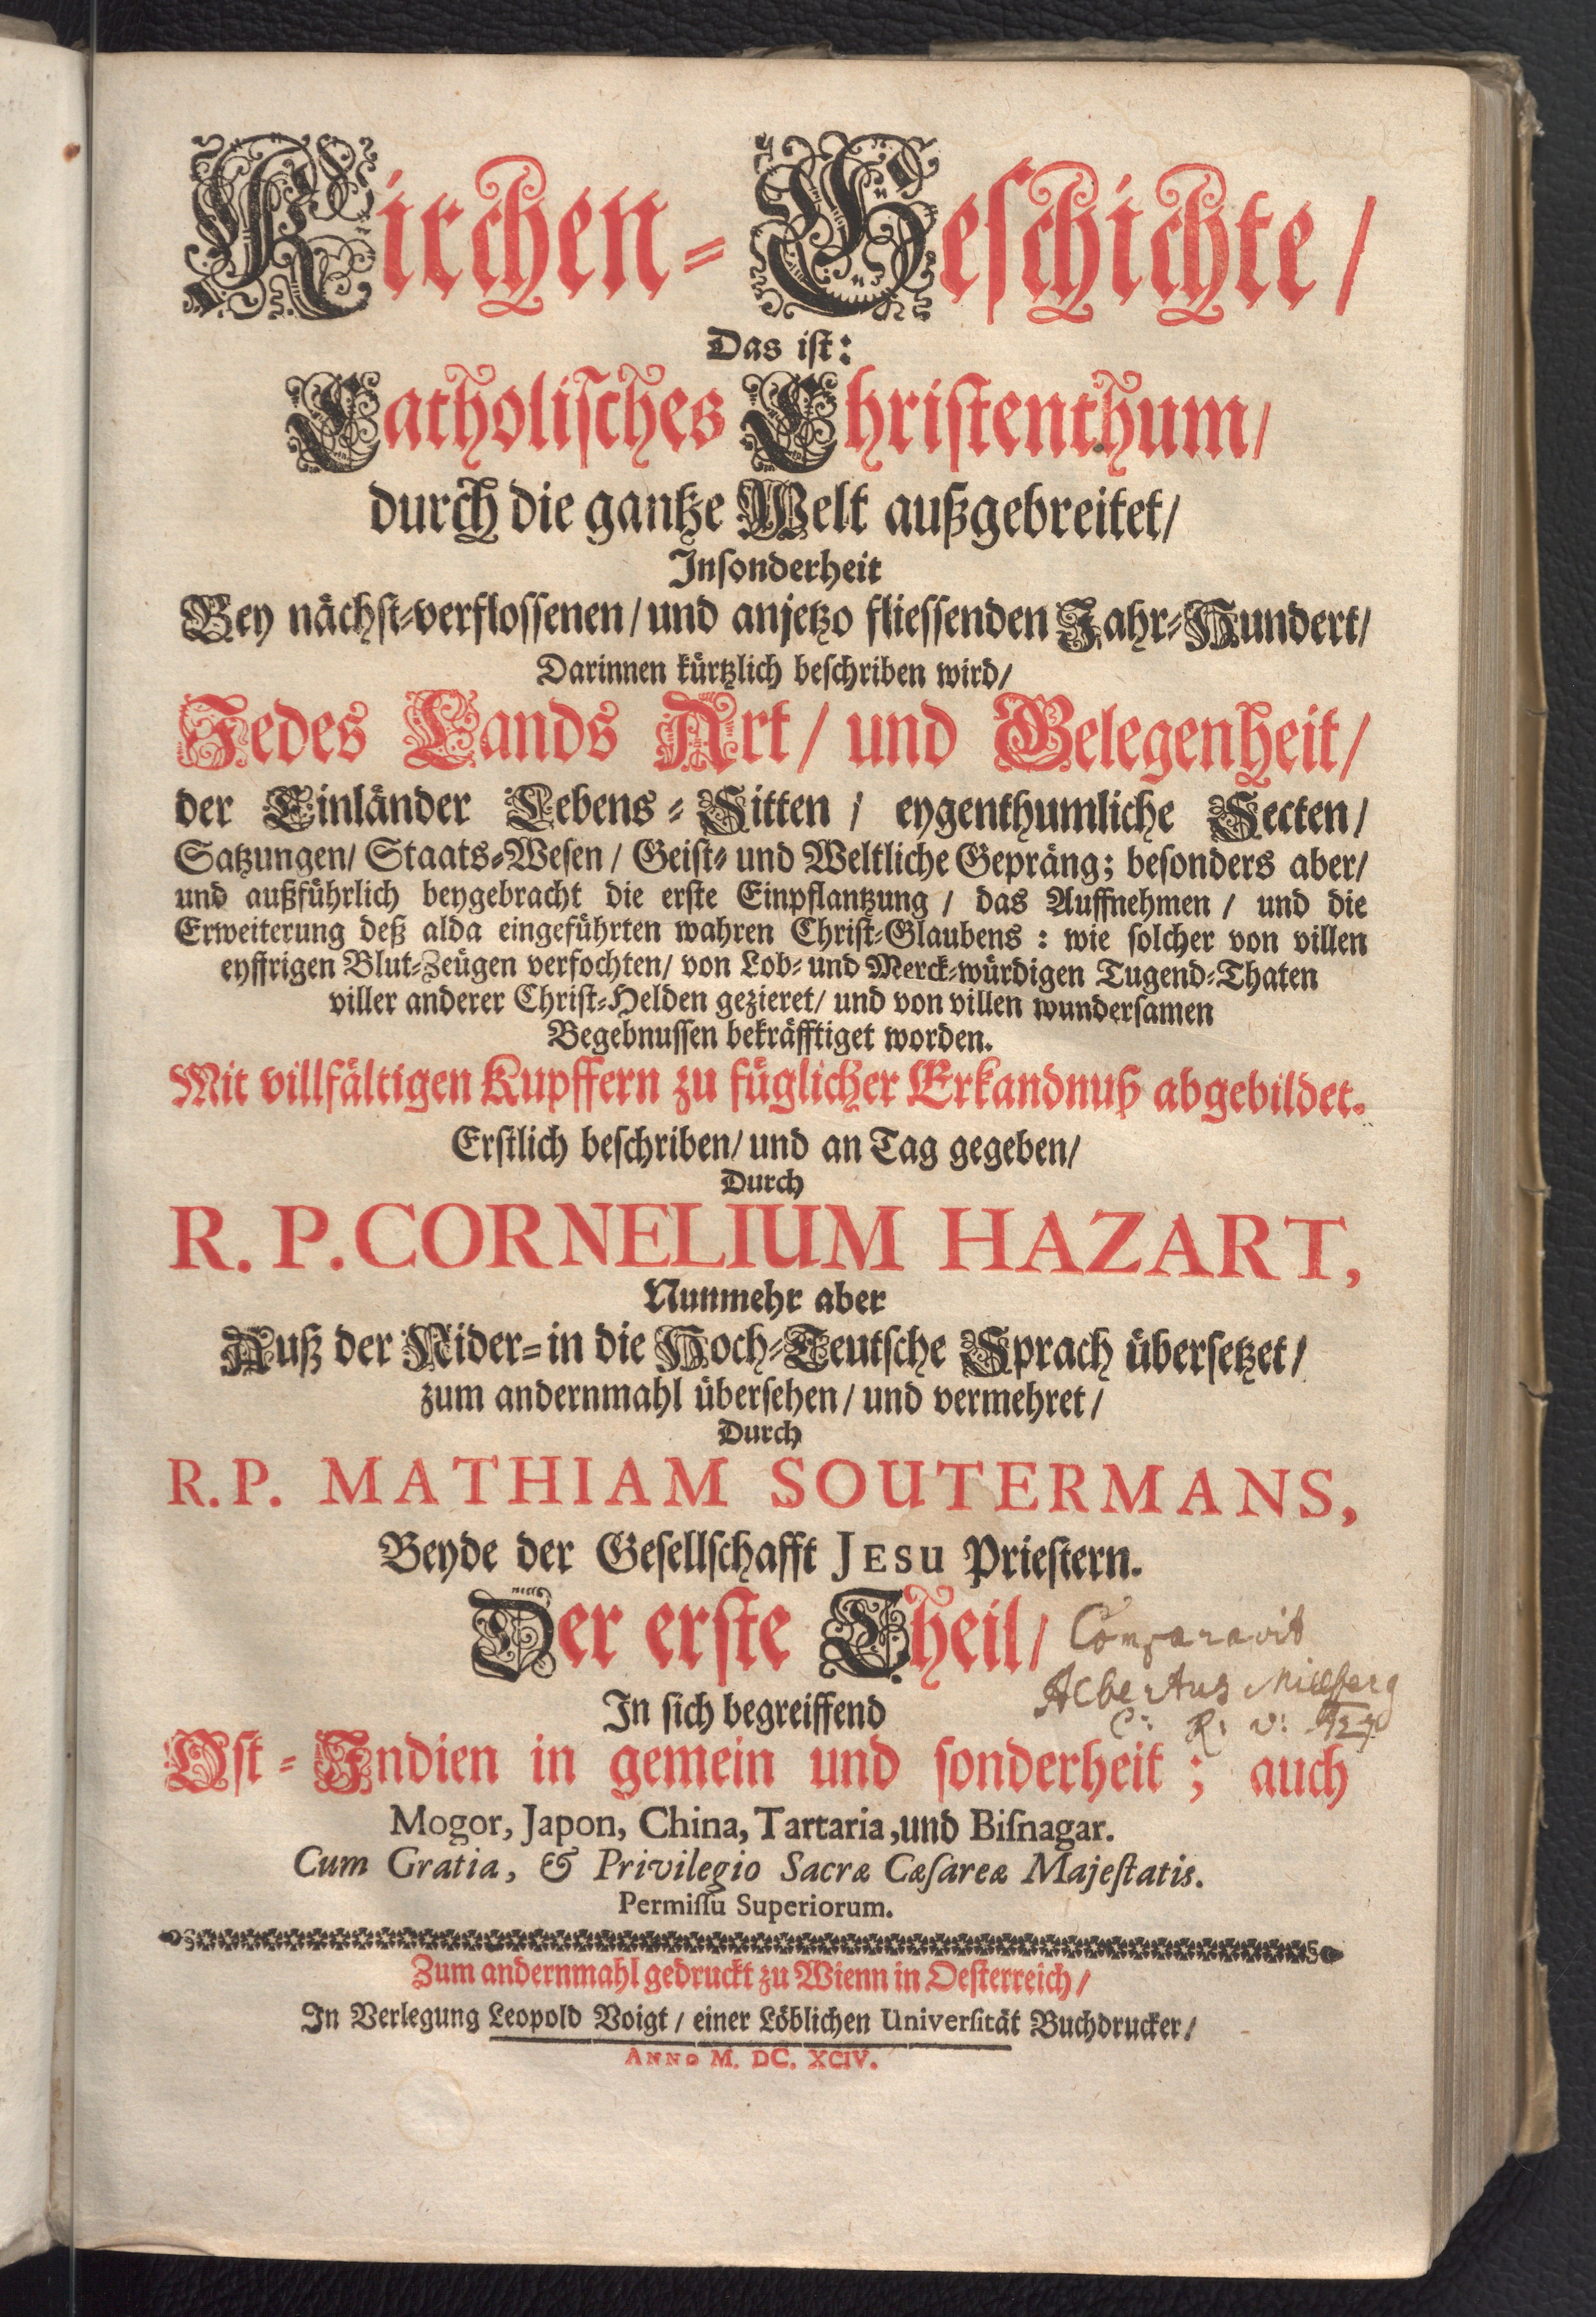 Kirchen-Geschichte/
Das ist:
Catholisches Christenthum/
durch die gantze Welt außgebreitet/
Insonderheit
Bey nächst-verflossenen/ und anjetzo fliessenden Jahr-Hundert/
Darinnen kürtzlich beschriben wird/
Jedes Lands Art/ und Gelegenheit/
der Einländer Lebens-Sitten/ eygenthumliche Secten/
Satzungen/ Staats-Wesen/ Geist- und Weltliche Gepräng; besonders aber/
und außführlich beygebracht die erste Einpflantzung/ das Auffnehmen/ und die
Erweiterung deß alda eingeführten wahren Christ-Glaubens: wie solcher von villen
eyffrigen Blut-Zeügen verfochten/ von Lob- und Merck-würdigen Tugend-Thaten
viller anderer Christ-Helden gezieret/ und von villen wundersamen
Begebnussen bekräfftiget worden.
Mit villfältigen Kupffern zu füglicher Erkandnuß abgebildet.
Erstlich beschriben/ und an Tag gegeben/
Durch
R. P. CORNELIUM HAZART,
Nunmehr aber
Auß der Nider- in die Hoch-Teutsche Sprach übersetzet/
zum andernmahl übersehen/ und vermehret/
Durch
R. P. MATHIAM SOUTERMANS,
Beyde der Gesellschafft JESU Priestern.
Der erste Theil/
Comparavit
Albertus Millberg
C: R: V:
In sich begreiffend
Ost-Indien in gemein und sonderheit; auch
Mogor, Japon, China, Tartaria, und Biſnagar.
Cum Gratia, & Privilegio Sacræ Cæſareæ Majeſtatis.
Permiſſu Superiorum.
Zum andernmahl gedruckt zu Wienn in Oesterreich/
In Verlegung Leopold Voigt/ einer Löblichen Universität Buchdrucker/
ANNO M. DC. XCIV.